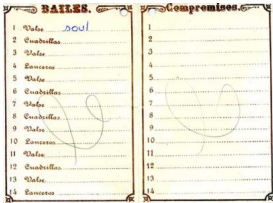 BAILES.
1 Valse soul
2 Cuadrillas
3 Valse
4 Lanceros
5 Valse
6 Cuadrillas
7 Valse
8 Cuadrillas
9 Valse
10 Lanceros
11 Valse
12 Cuadrillas
13 Valse
14 Lanceros
Compromisos.
1
2
3
4
5
6
7
8
9
10
11
12
13
14